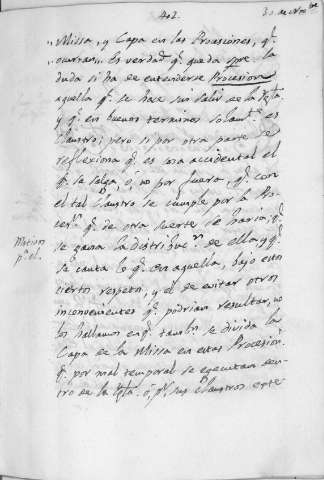 402.
30 de Nov.bre
,,Missa, y Capa en las Procesiones, q.e
,,ocurran,, Es verdad q.e queda spre la
duda si ha de entenderse Procesion
aquella q.e se hace sin salir de la Ygta.
y q.e en buenos terminos solam.te es
claustro; pero si por otra parte se
reflexiona q.e es mia accidental el
q.e se salga, ó no por fuera, q.e con
el tal Claustro se cumple por la Pro-
ces.on q.e de otra suerte se haria, q.e
se gana la distribuc.on de ella, y q.e
se canta lo q.e en aquella, bajo estos
ciertos respetos, y el de evitar otros
inconvenientes q.e podrian resultar, no
los hallamos en q.e tambn se divida la
Capa de la Missa en estas Procesion.s
q.e por mal temporal se executan den-
tro de la Ygta. ó p.r sus Claustros este
Motivos
p.a el.